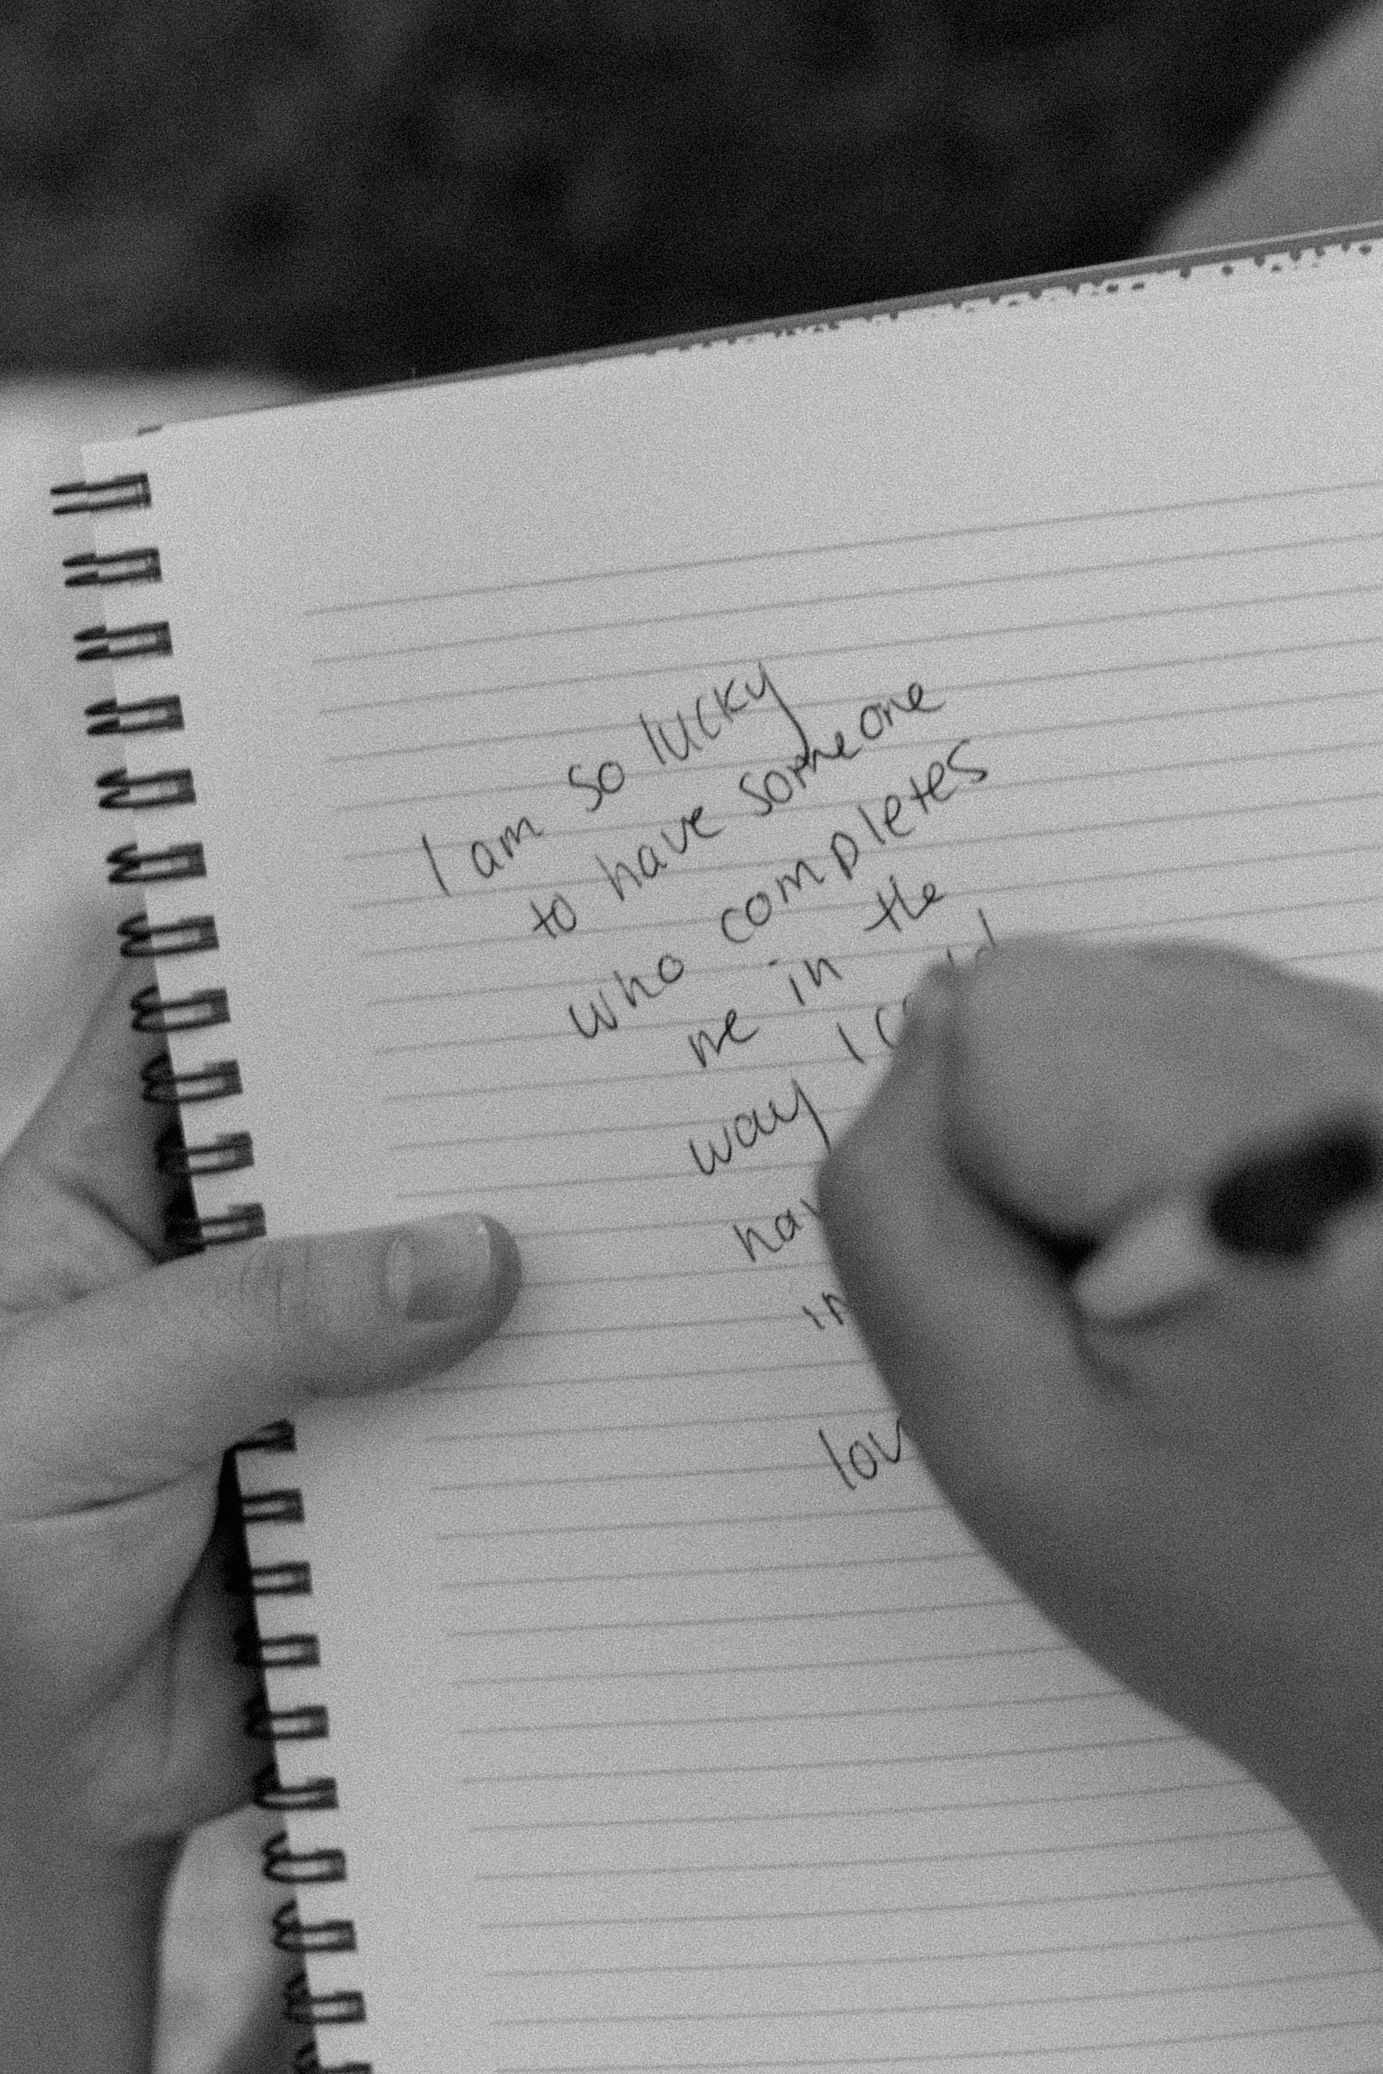 I am so lucky
to have someone
who completes
me in the
way I